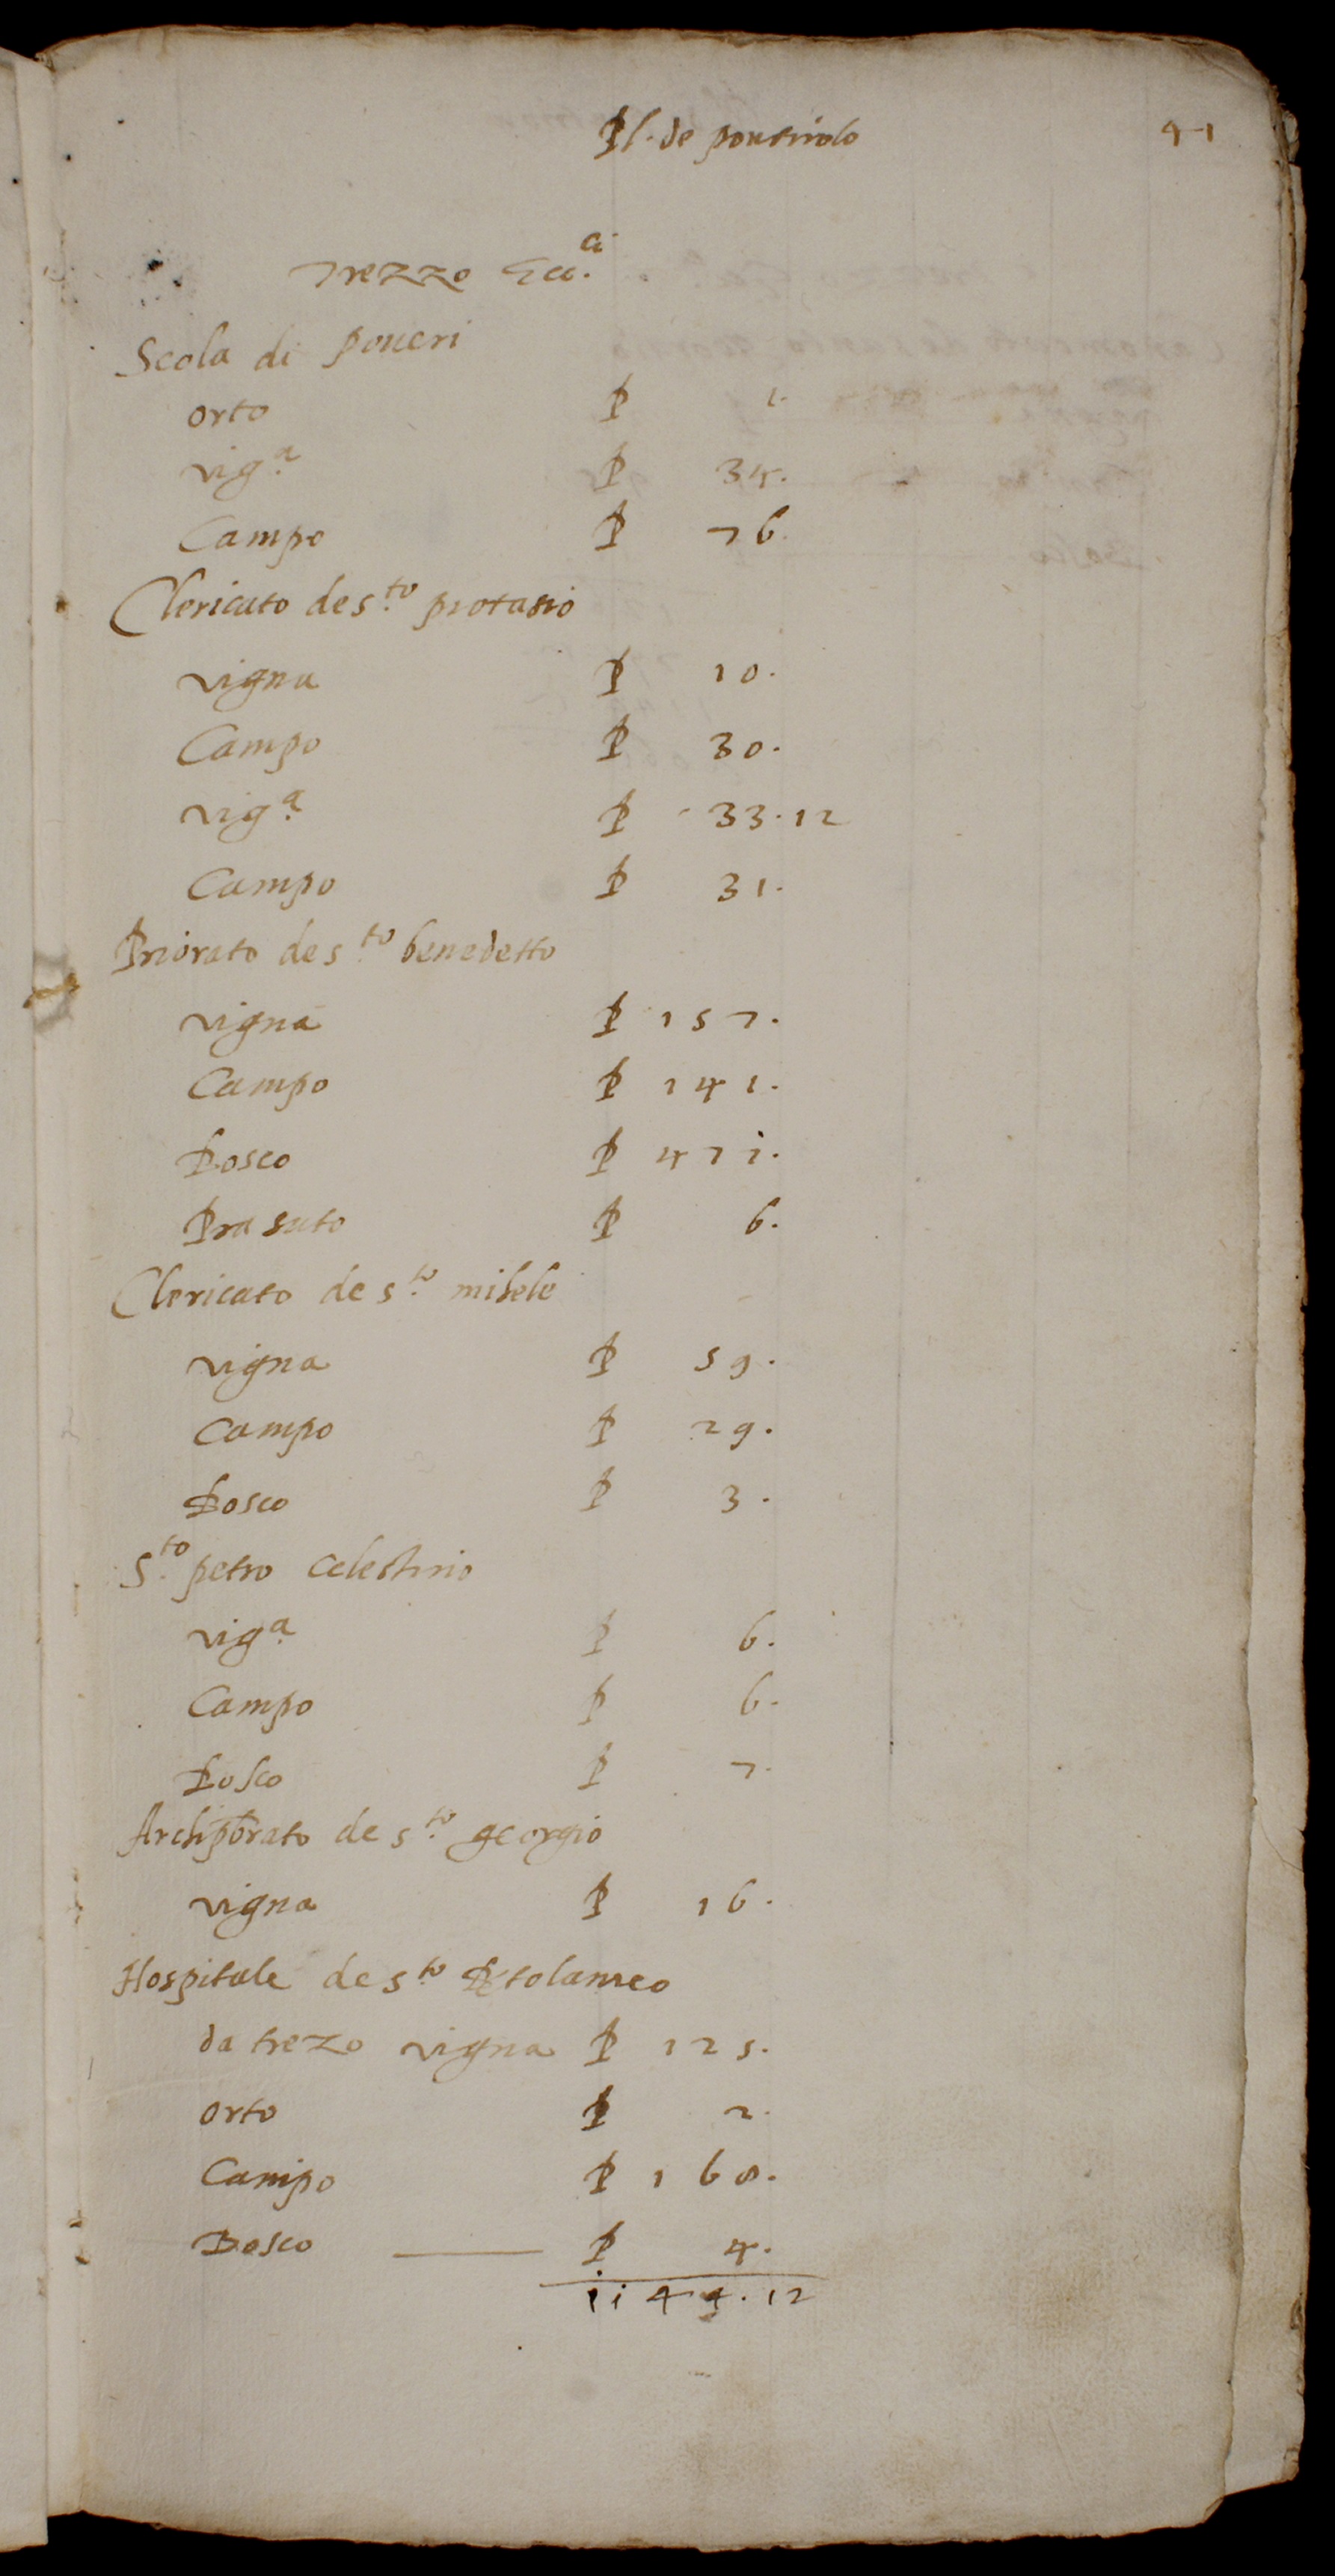 Pl. de pontirolo 41
Trezzo Ecc.ᵃ
Scola di poueri
orto P 1.
vig.ᵃ P 34.
Campo P 76.
Clericato de s.ᵗᵒ protasio
vigna P 10.
Campo P 30.
vig.ᵃ P 33.12
Campo P 31.
Priorato de s.ᵗᵒ benedetto
vigna P 157.
Campo P 141.
Bosco P 471.
Pra suto P 6.
Clericato de s.ᵗᵒ mihele
vigna P 59.
Campo P 29.
Bosco P 3.
S.ᵗᵒ petro Celestino
vig.ᵃ P 6.
Campo P 6.
Bosco P 7.
Archipbrato de s.ᵗᵒ georgio
vigna P 16.
Hospitale de s.ᵗᵒ Btolameo
da trezo vigna P 125.
orto P 2.
Campo P 168.
Bosco P 4.
1144.12